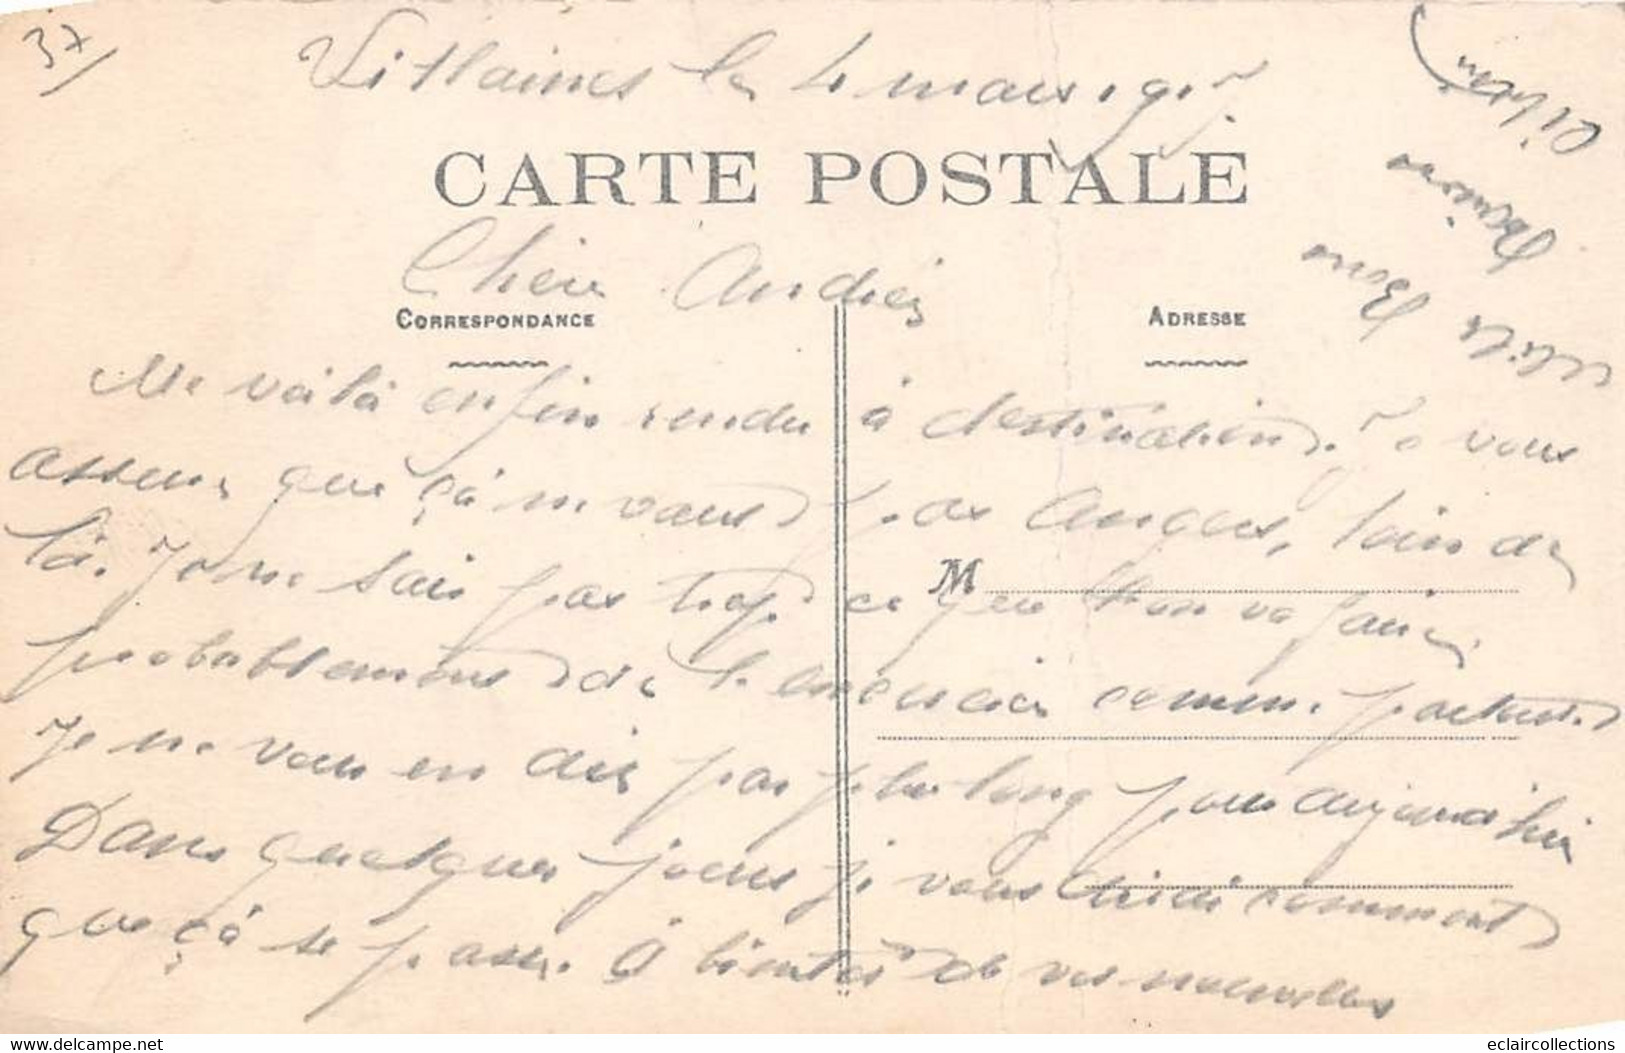 37
Villaines le 4 mars 191
CARTE POSTALE
Chère Andrée
CORRESPONDANCE
ADRESSE
Me voilà enfin rendu à destination. Je vous
assure que çà ne vaus pas Angers, loin de
là. Je ne sais pas trop ce que l'on va faire
probablement de l'exercice comme partout
M
Je ne vous en dis pas plus long pour aujourd'hui
Dans quelques jours je vous dirai comment
que çà se passe. à bientôt de vos nouvelles
eclaircollections